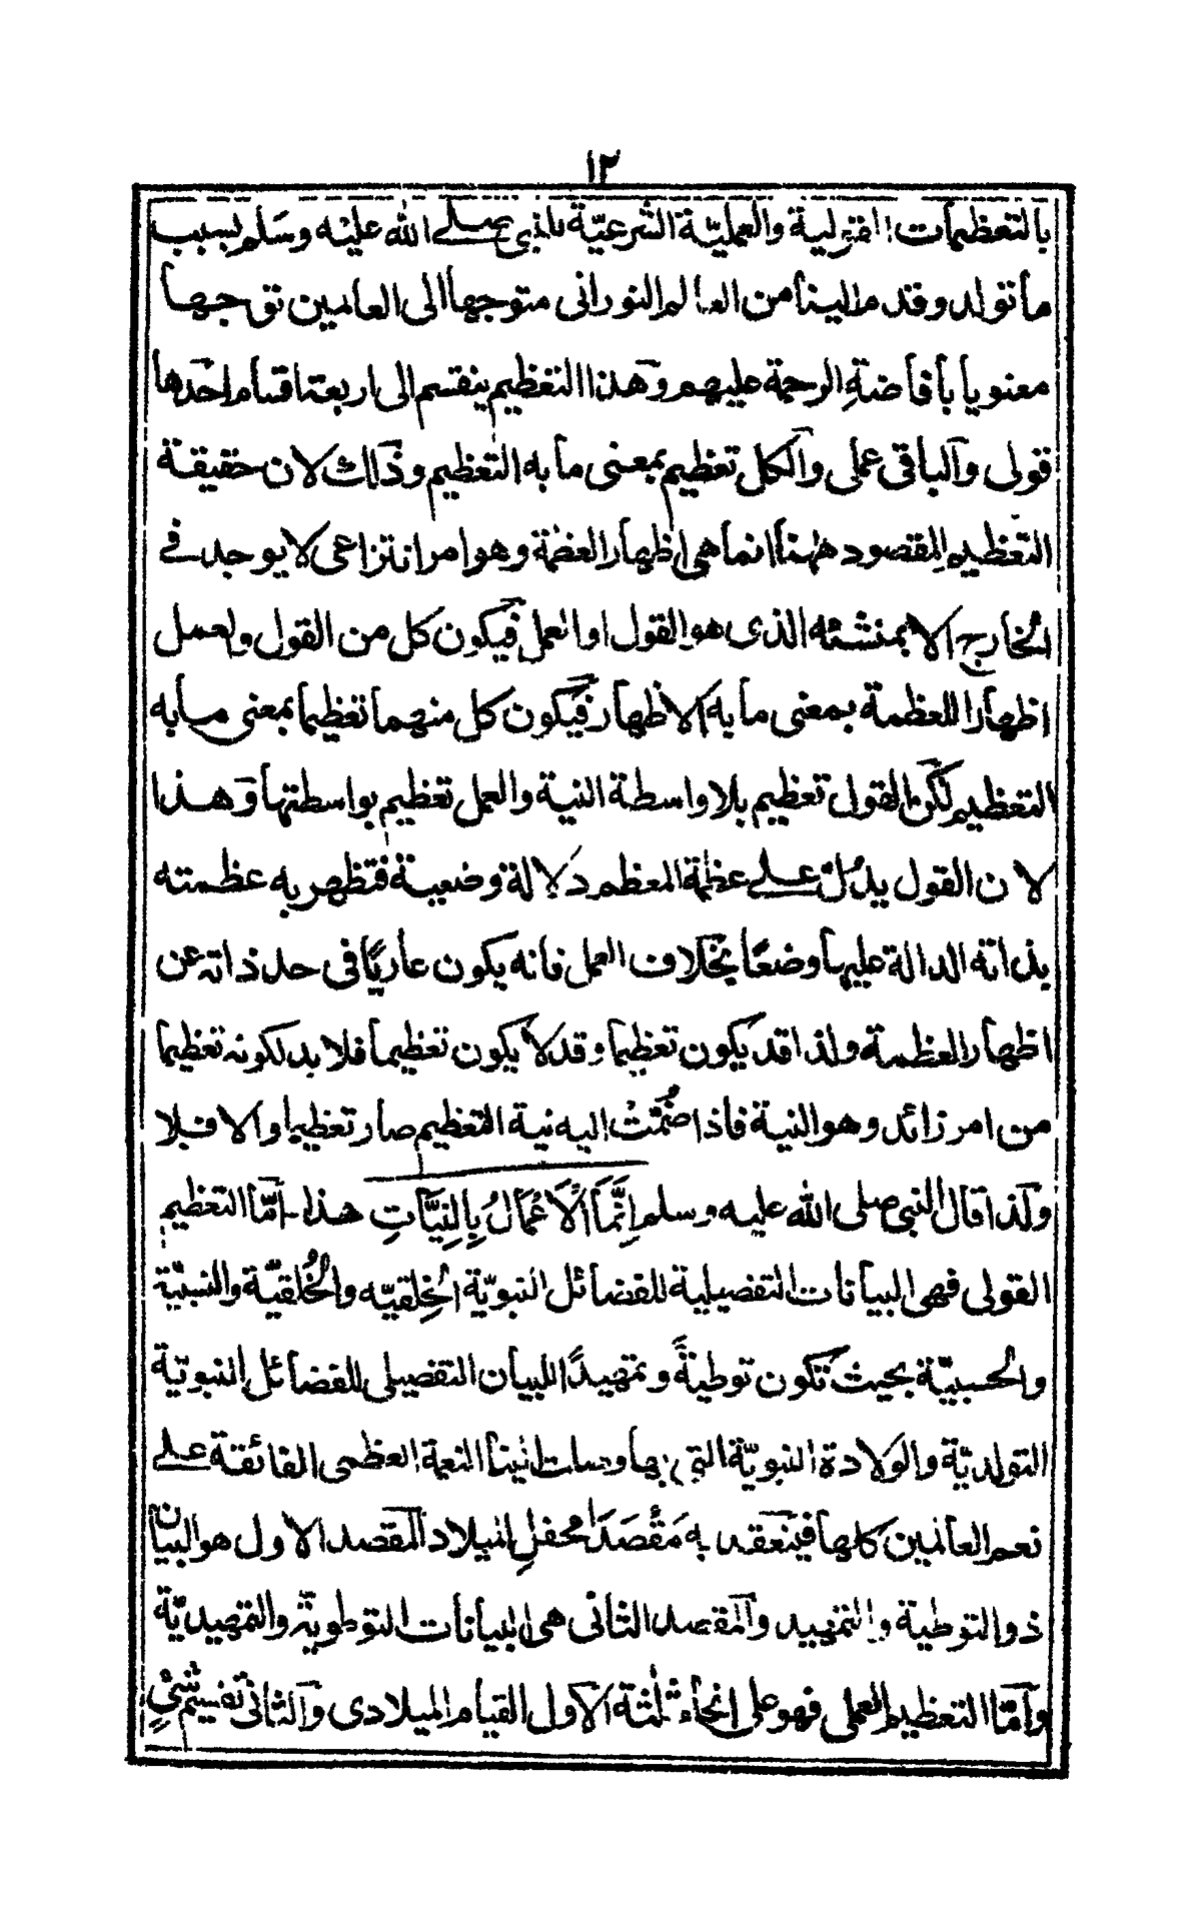 ١٢
بالتعظيمات القولية والعمليّة الشرعيّة بالنبي صلى الله عليه وسَلم بسبب
ما تولد وقدم الينا من العالم النورانى متوجها الى العالمين توجها
معنويا بأفاضةِ الرحمة عليهم وهذا التعظيم ينقسم الى اربعة اقسام احدها
قولى والباقى عملى والكل تعظيم بمعنى ما به التعظيم وذالك لان حقيقة
التعظيم المقصود ههنا انما هى اظهار العظمة وهو امر انتزاعى لا يوجد فے
الخارج الا بمنشئه الذى هو القول او العمل فيكون كل من القول والعمل
اظهارا للعظمة بمعنى ما به الاظهار فيكون كل منهما تعظيما بمعنى ما به
التعظيم لكن القول تعظيم بلا واسطة النية والعمل تعظيم بواسطتها وهذا
لان القول يدلّ علے عظمة المعظم دلالة وضعية فتظهر به عظمته
بذاته الدالة عليها وضعًا بخلاف العمل فانه يكون عاريًا فى حد ذاته عن
اظهار العظمة ولذا قد يكون تعظيما وقد لا يكون تعظيما فلا بد لكونه تعظيما
من امر زائد وهو النية فاذا ضُمّتْ اليه نية التعظيم صار تعظيما والا فلا
ولذا قال النبى صلى الله عليه وسلم اِنَّمَا الْاَعْمَالُ بِالنِّيَّاتِ هذا۔ امّا التعظيم
القولى فهى البيانات التفصيلية للفضائل النبويّة الخِلقيّه والخُلقيّة والنسبيّة
والحسبيّة بحيث تكون توطيةً وتمهيدًا للبيان التفصيلى للفضائل النبويّة
التولديّة والولادة النبويّة التى بها وصلت الينا النعمة العظمى الفائقة علے
نعم العالمين كلها فينعقد به مَقْصَدَا محفلِ الميلاد المقصد الاول هو البيان
ذو التوطية والتمهيد والمقصد الثانى هى البيانات التوطويّة والتمهيديّة
وامّا التعظيم العملى فهو على انحاء ثلثة الاول القيام الميلادى والثانى تقسيم شئٍ